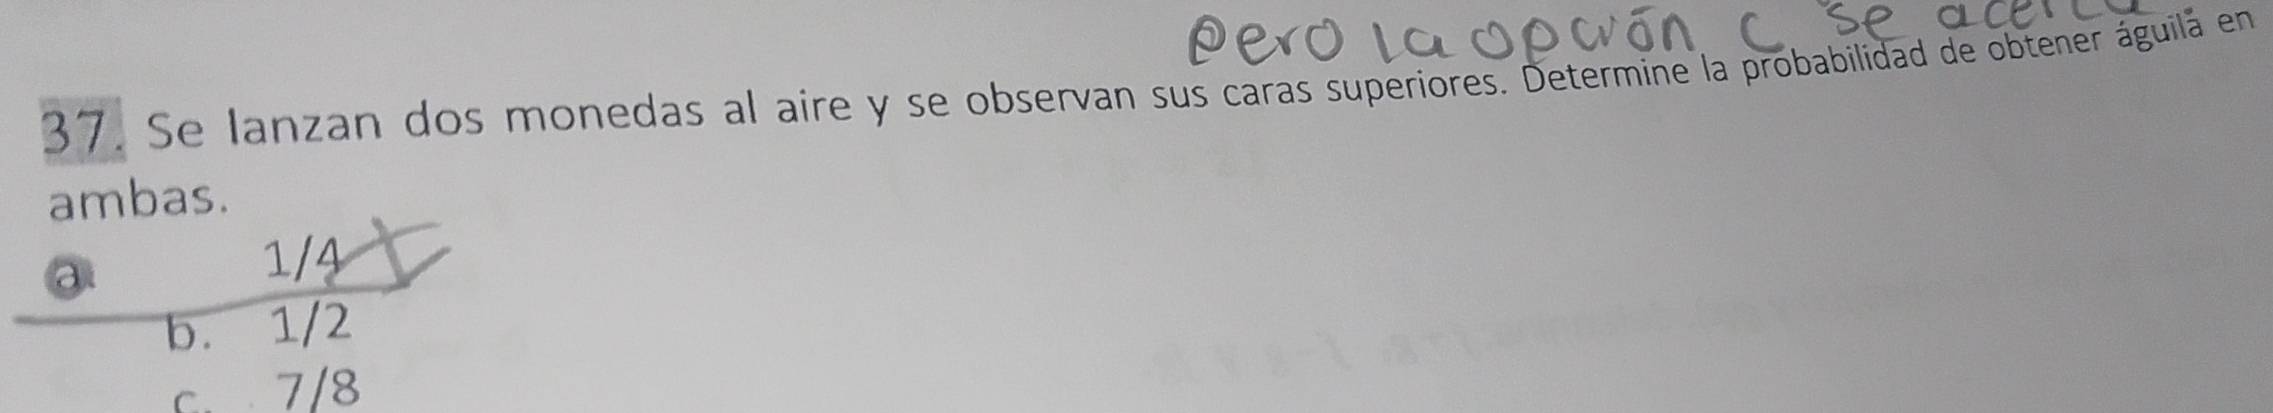 Pero la opción C se acerca
37. Se lanzan dos monedas al aire y se observan sus caras superiores. Determine la probabilidad de obtener águila en
ambas.
a. 1/4
b. 1/2
c. 7/8